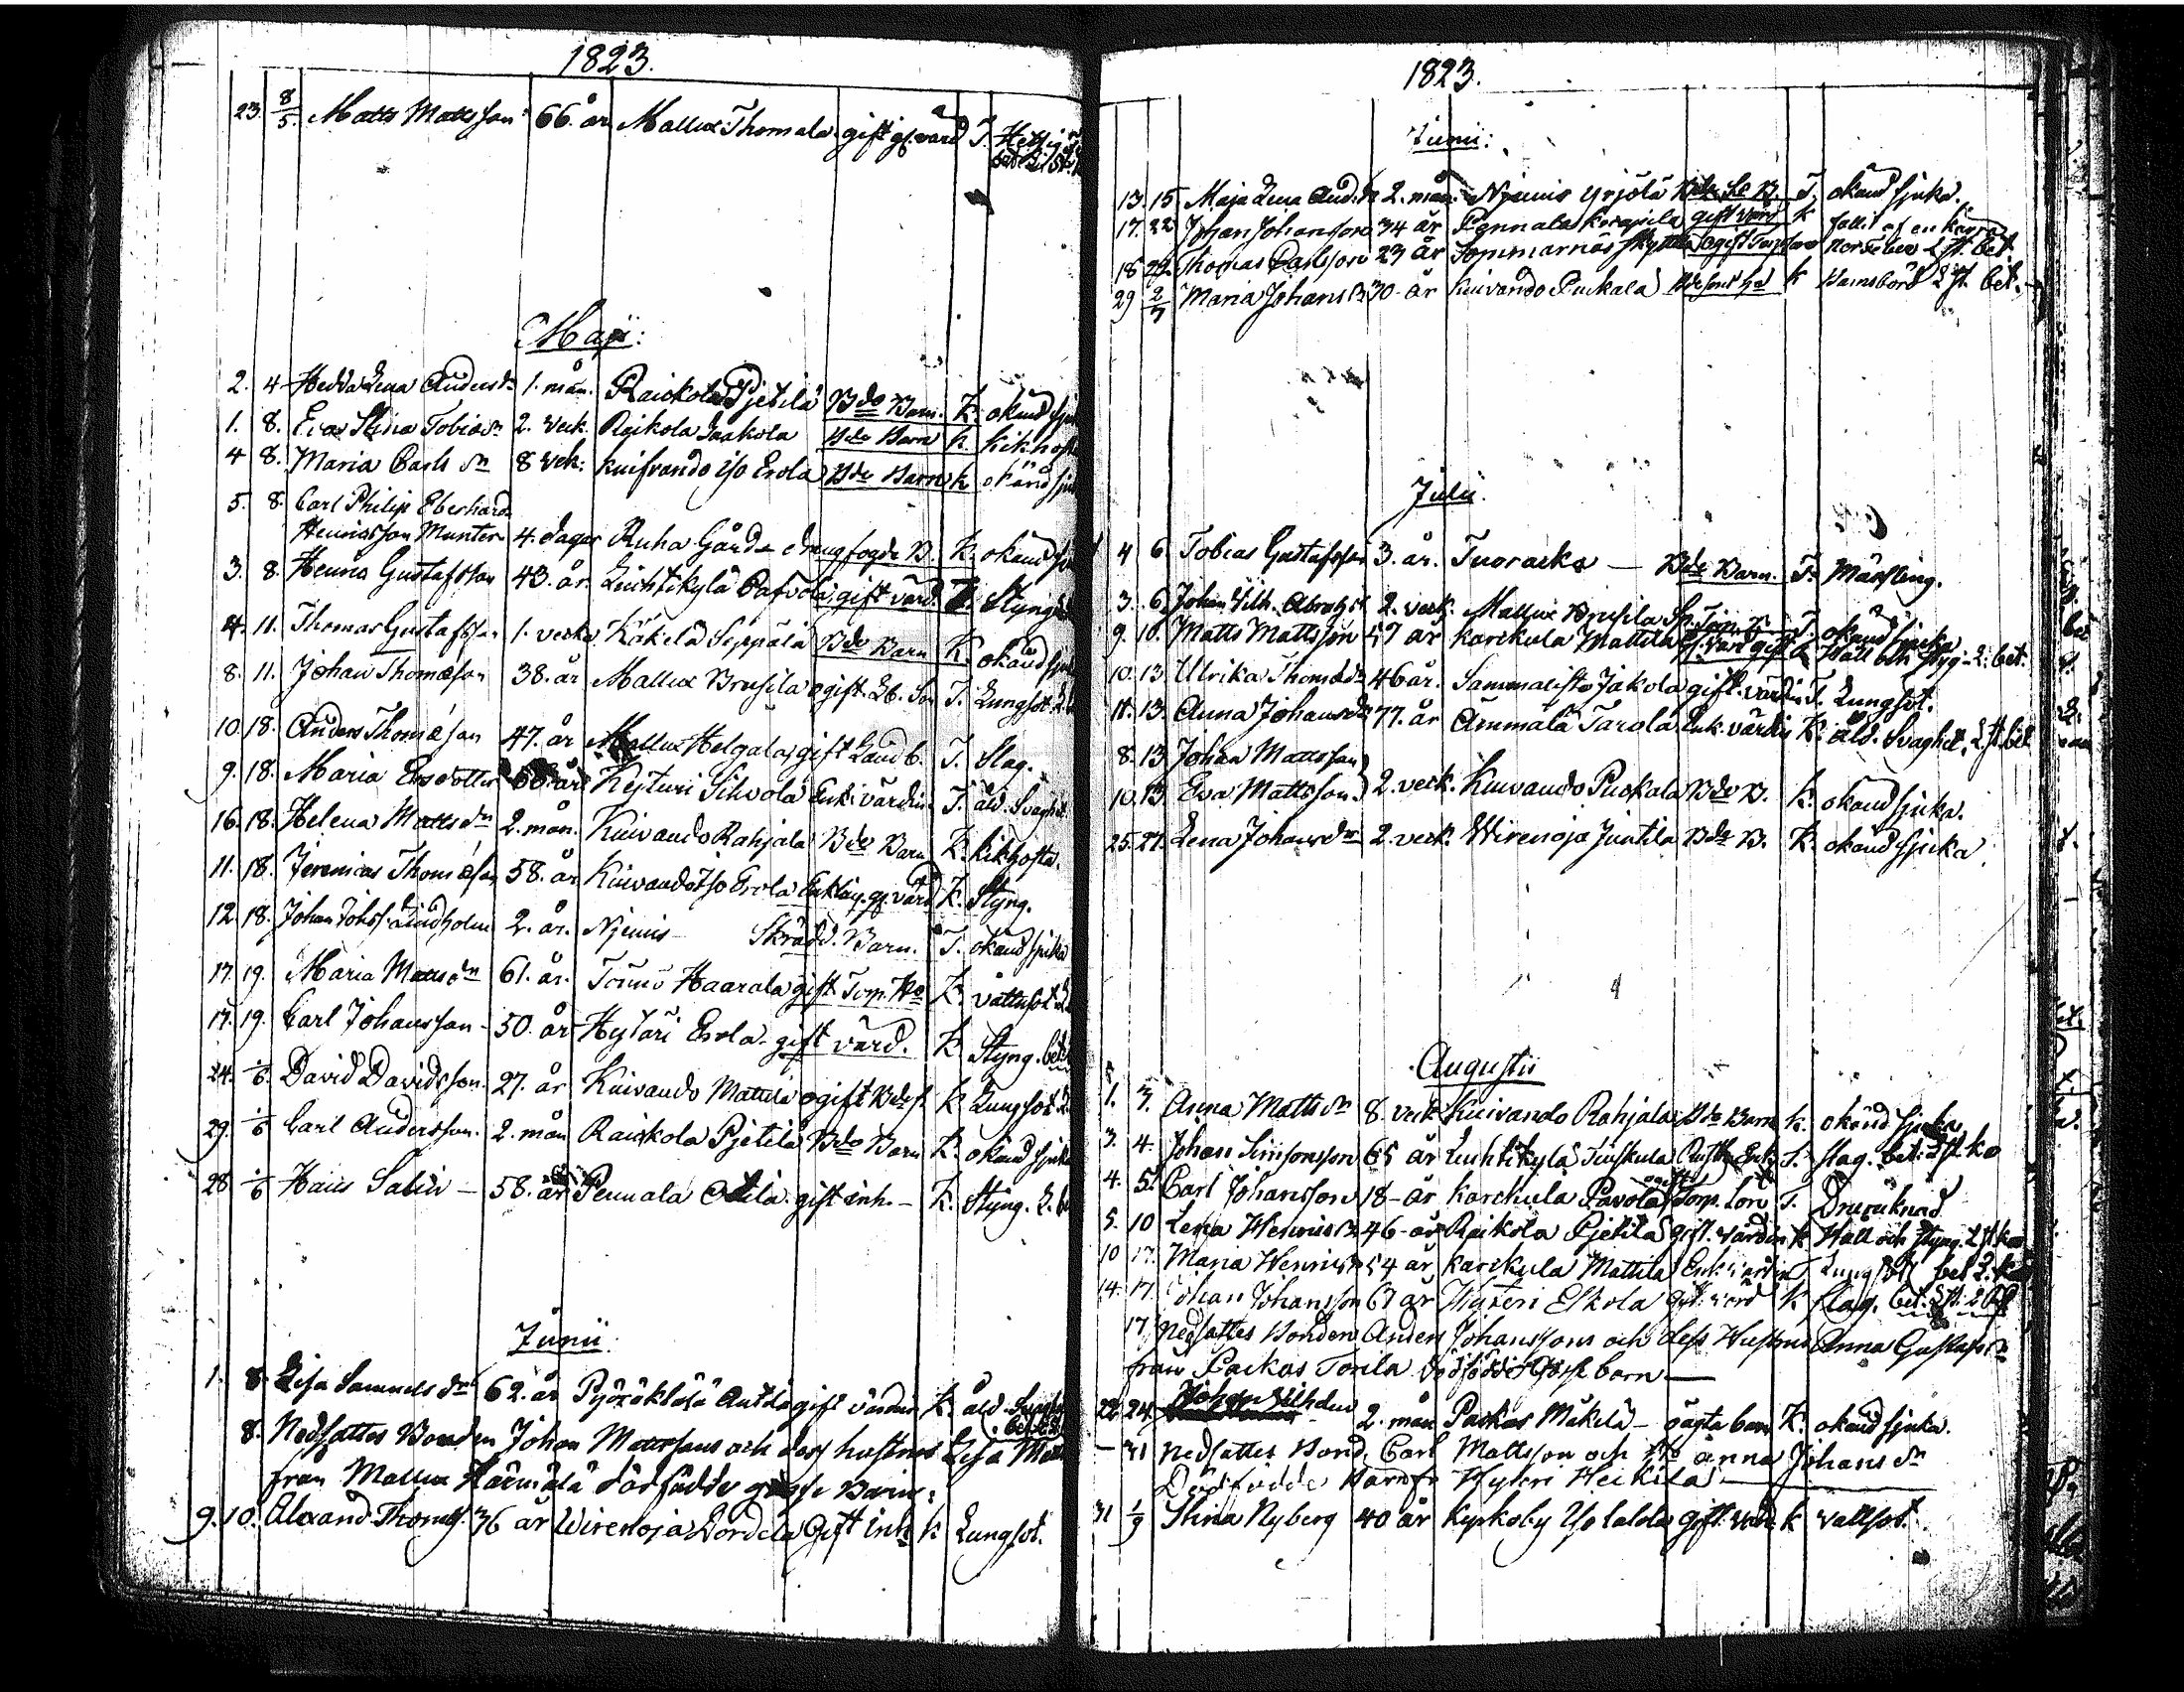 1823.
23. 8/5. Matts Mattsson 66. år Mallux Thomala gift gl. värd T. Hettig
Maji:
2. 4 Hedda Lena Andersdr 1. mån. Raickola Pjetilä Bde Barn. K. okänd sju
1. 8. Eva Stina Tobiædr 2. veck. Raikola Jaakola Bde Barn k. kikhosta
4 8. Maria Carls dr 8 vek: kuifvando iso Erola Bde Barn k okänd sju
5. 8. Carl Philip Eberhard
Henricsson Munter 4. dagar Ruha Gård drengfogde B. K. okänd sju
3. 8. Henric Gustafsson 43. år Leuhtikylä Pafvola gift värd. T. Styng
4. 11. Thomas Gustafsson 1. vecka Käkelä Seppälä Bde Barn K. okänd sju
8. 11. Johan Thomæson 38. år Mallux Brusila ogift Lb. Son T. Lungsot
10. 18. Anders Thomæson 47. år Mallux Helgala gift Landb. T. Slag.
9. 18. Maria Ersdotter 60. år Kejturi Sihvola Enk. värdin T. åld. Svaghet
16. 18. Helena Matts dr 2. mån. Kuivando Rahjala Bde Barn K. kikhosta.
11. 18. Jeremias Thomæson 58. år Kuivando Iso Erola Enkling gl. värd K. Styng.
12 18. Johan Johss. Lindholm 2. år. Njemis Skrädd. Barn. T. okänd sjuka
17. 19. Maria Mattsdr 61. år. Tormä Haarala gift Torp. Ho K. vattusot
17. 19. Carl Johansson 50. år Hytäri Erola gift värd. K. Styng. bet
24. 1/6. David Davidsson 27. år Kuivando Mattila ogift Bde s. K Lungsot
29. 1/6 Carl Andersson. 2. mån Raickola Pjetilä Bde Barn K. okänd sjuka
28 1/6 Hans Salin 58. år Pennala Otila gift inh. K. Styng. L. be
Junii:
1. 8. Lisa Samuels dr 62. år Pyöröklälä Anttila gift värdin K. åld. Svaghet
8. Nedsattes Bonden Johan Mattssons och dess hustrus Lisa Matts
från Mallux Härmälä dödfödde gosse Barn:
9. 10. Alexand. Thomæs. 36 år Wirenoja Lordila Gift inh. k Lungsot.
1823.
Junii:
13. 15 Maja Lena And. dr 2. mån. Njemis Yrjölä Bde B. T. okänd sjuka.
17. 22 Johan Johansson 34 år Pennala korspila gift värd K fallit af en kärra
18 22. Thomas Carlsson 23 år Sommarnäs ogift Nervfeber L ft. bet.
29 2/7 Maria Johans dr 30 år Kuivando Puckala k Barnsbörd L ft. bet.
Julii.
4 6 Tobias Gustafsson 3. år. Tuoracka Bde Barn. T. Mässling.
3. 6. Johan Vilh. 2. veck. Mallux Brusila T okänd sjuka
9. 10. Matts Mattsson 57 år karckula Mattila gl. värd gift Håll och Styg. L. bet.
10. 13. Ulrika Thomædr 46 år. Sammalisto Jakola gift. värdin T. Lungsot.
11. 13. Anna Johansdr 77. år Ämmälä Tarola Enk. värdin K. åld. Svaghet. L ft. bet
8. 13 Johan Mattsson
10. 13. Eva Mattsson 2. veck. Kuivando Puckala Bde B. K. okänd sjuka.
25. 27. Lena Johansdr 2. veck. Wirenoja Juntila Bde B. K. okänd sjuka
Augusti
1. 3. Anna Matts dr 8. veck Kuivando Rahjala Bde Barn k. okänd sjuka
3. 4. Johan Simonsson 65 år Leuhtikylä Tinskula Enk. T. slag. bet. L ft. ko
4. 5. Carl Johansson 18 år karckula Pavola ogift Torp. son T. Drunknad
5. 10 Lena Henricsdr 46 år Raikola Pjetilä gift. värdin k Håll och Styng L ft ko
10 17. Maria Henricsdr 54 år karckula Mattila Enk: värdin T Lungsot bet L. ko
14. 17. Johan Johansson 67 år Hyteri Eskola gift värd k slag. bet. L ft.
17 Nedsattes Bonden Anders Johanssons och dess Hustrus Anna Gustafsdr
från Packas Torila dödfödde Gosse barn
22. 24. Johan Wilhelm 2. mån Packas Mäkelä oägta barn K. okänd sjuka.
31 Nedsattes Bond. Carl Mattsson och Ho Anna Johans dr
Dödfödde Barn fr Hyteri Heickilä
31 1/9 Stina Nyberg 40 år Kyrkoby Ylolalda gift k vattsot.